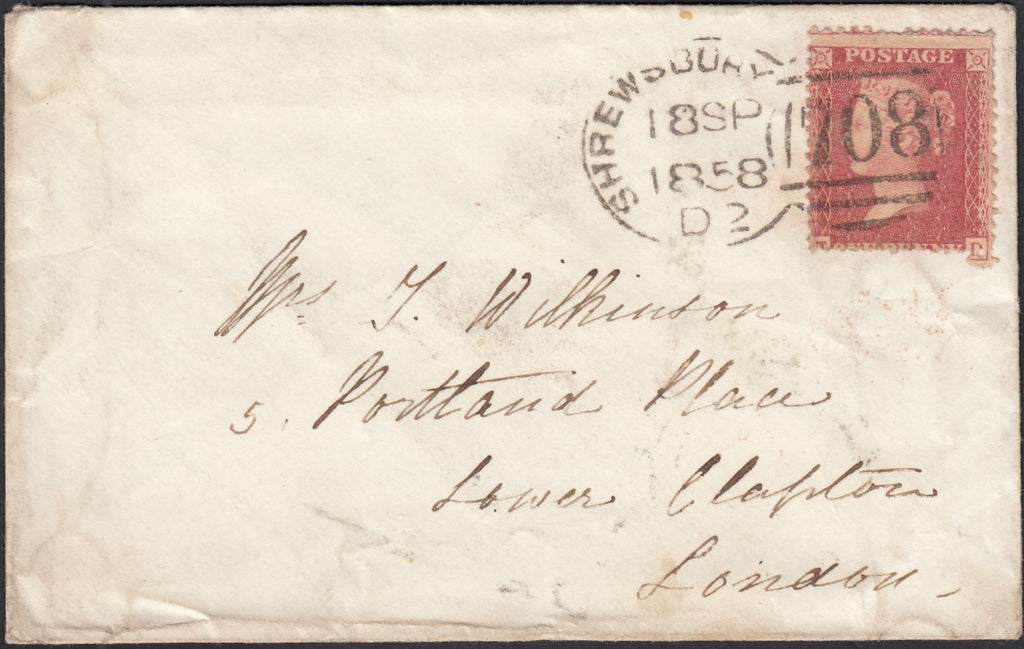 POSTAGE
SHREWSBURY
18SP
1858
D2
708
ONE PENNY
Mrs J. Wilkinson
5. Portland Place
Lower Clapton
London